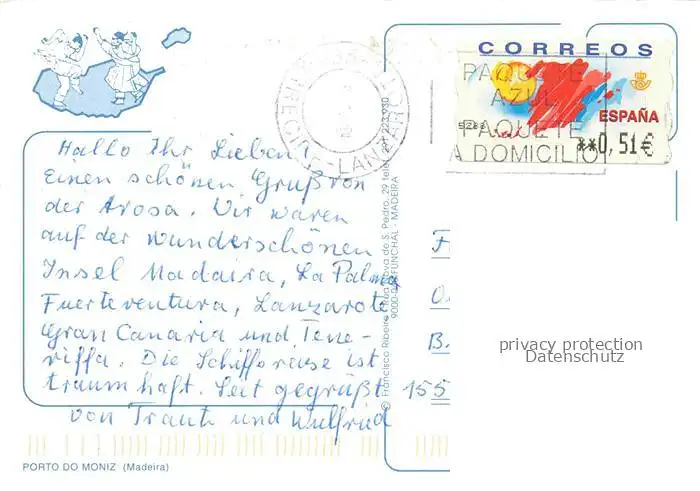 CORREOS
PAQUETE
AZUL
PAQUETE
A DOMICILIO
ESPAÑA
**0,51€
Hallo Ihr Lieben
Einen schönen Gruß von
der Arosa. Wir waren
auf der wunderschönen
Insel Madaira, La Palma
Fuerteventura, Lanzarote
Gran Canaria und Tene-
riffa. Die Schiffsreise ist
traumhaft. Seit gegrüßt
von Traute und Wulfried
© Francisco Ribeiro Rua Nova de S. Pedro, 29
9000 FUNCHAL - MADEIRA
B.
155
privacy protection
Datenschutz
PORTO DO MONIZ (Madeira)